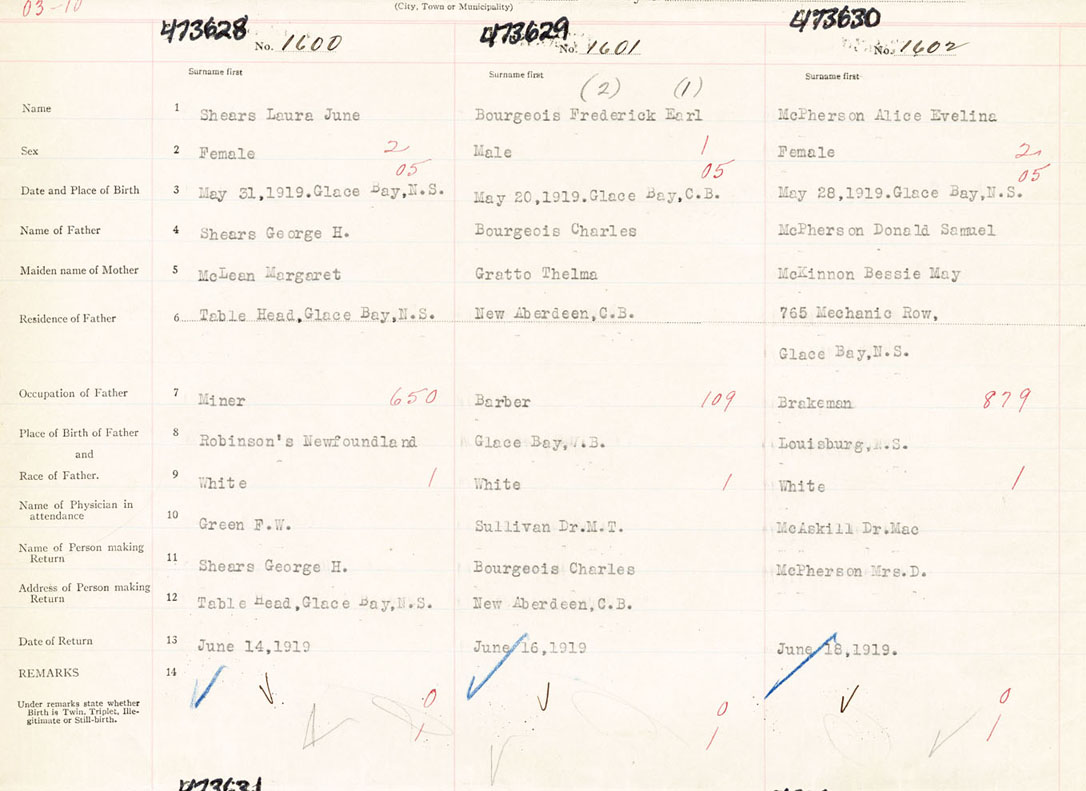 03-10
(City, Town or Municipality)
473628 473629 473630
No. 1600 No. 1601 No. 1602
Surname first Surname first Surname first
(2) (1)
Name 1 Shears Laura June Bourgeois Frederick Earl McPherson Alice Evelina
Sex 2 Female 2 Male 1 Female 2
05 05 05
Date and Place of Birth 3 May 31,1919.Glace Bay,N.S. May 20,1919.Glace Bay,C.B. May 28,1919.Glace Bay,N.S.
Name of Father 4 Shears George H. Bourgeois Charles McPherson Donald Samuel
Maiden name of Mother 5 McLean Margaret Gratto Thelma McKinnon Bessie May
Residence of Father 6 Table Head,Glace Bay,N.S. New Aberdeen,C.B. 765 Mechanic Row,
Glace Bay,N.S.
Occupation of Father 7 Miner 650 Barber 109 Brakeman 879
Place of Birth of Father 8 Robinson's Newfoundland Glace Bay, Louisburg,N.S.
and
Race of Father. 9 White 1 White 1 White 1
Name of Physician in
attendance 10 Green F.W. Sullivan Dr.M.T. McAskill Dr.Mac
Name of Person making
Return 11 Shears George H. Bourgeois Charles McPherson Mrs.D.
Address of Person making
Return 12 Table Head,Glace Bay,N.S. New Aberdeen,C.B.
Date of Return 13 June 14,1919 June 16,1919 June 18,1919.
REMARKS 14
Under remarks state whether
Birth is Twin, Triplet, Ille-
gitimate or Still-birth.
0 0 0
1 1 1
473631